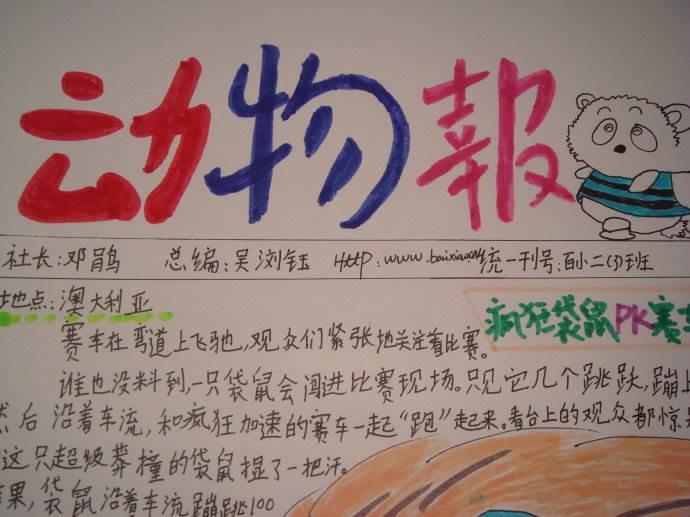 动物報
社长:邓鹃 总编:吴浏钰 Http:www.baixiao 统一刊号:百小二(3)班
地点:澳大利亚
疯狂袋鼠PK赛
赛车在弯道上飞驰,观众们紧张地关注着比赛。
谁也没料到,一只袋鼠会闯进比赛现场。只见它几个跳跃,蹦上
然后沿着车流,和疯狂加速的赛车一起“跑”起来。看台上的观众都惊
这只超级莽撞的袋鼠捏了一把汗。
果,袋鼠沿着车流蹦跳100